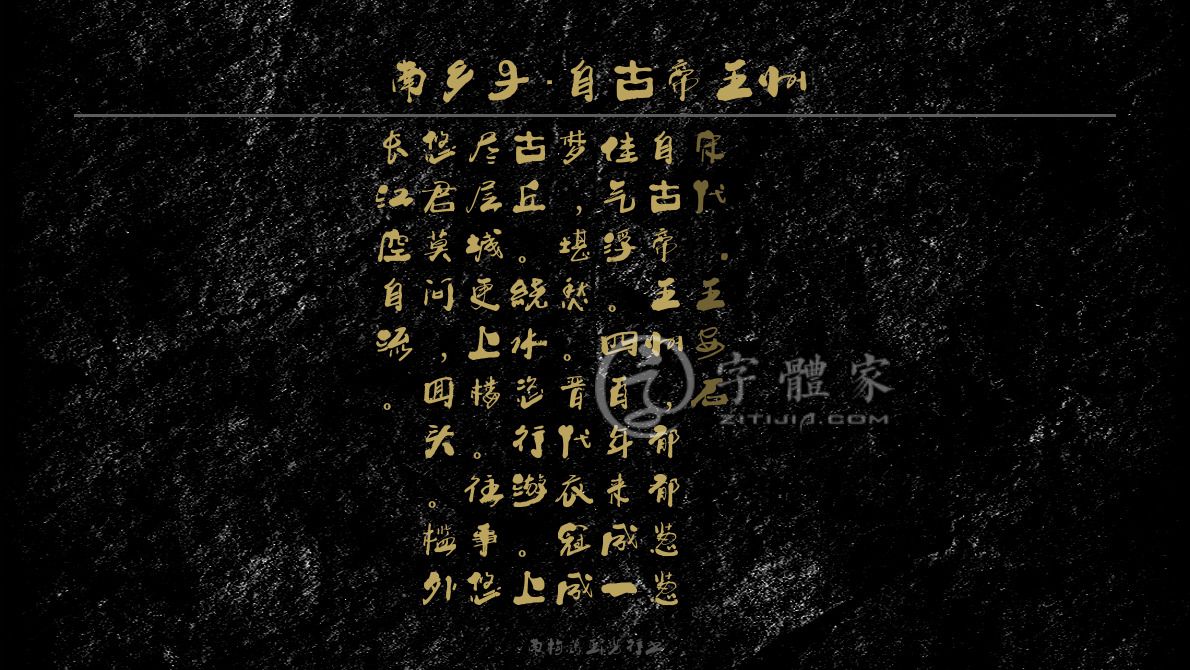 南乡子·自古帝王州
宋代·王安石
自古帝王州，郁郁葱葱
佳气浮。四百年来成一
梦，堪愁。晋代衣冠成
古丘。绕水恣行游。上
尽层城更上楼。往事悠
悠君莫问，回头。槛外
长江空自流。
字體家
ZITIJIA.COM